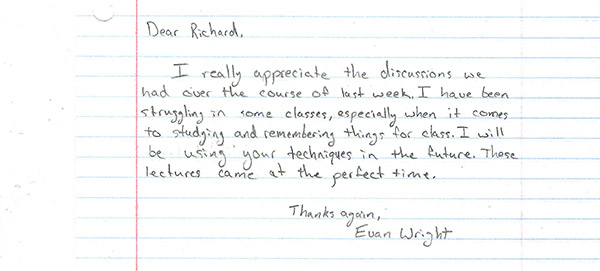 Dear Richard,
I really appreciate the discussions we
had over the course of last week. I have been
struggling in some classes, especially when it comes
to studying and remembering things for class. I will
be using your techniques in the future. Those
lectures came at the perfect time.
Thanks again,
Evan Wright